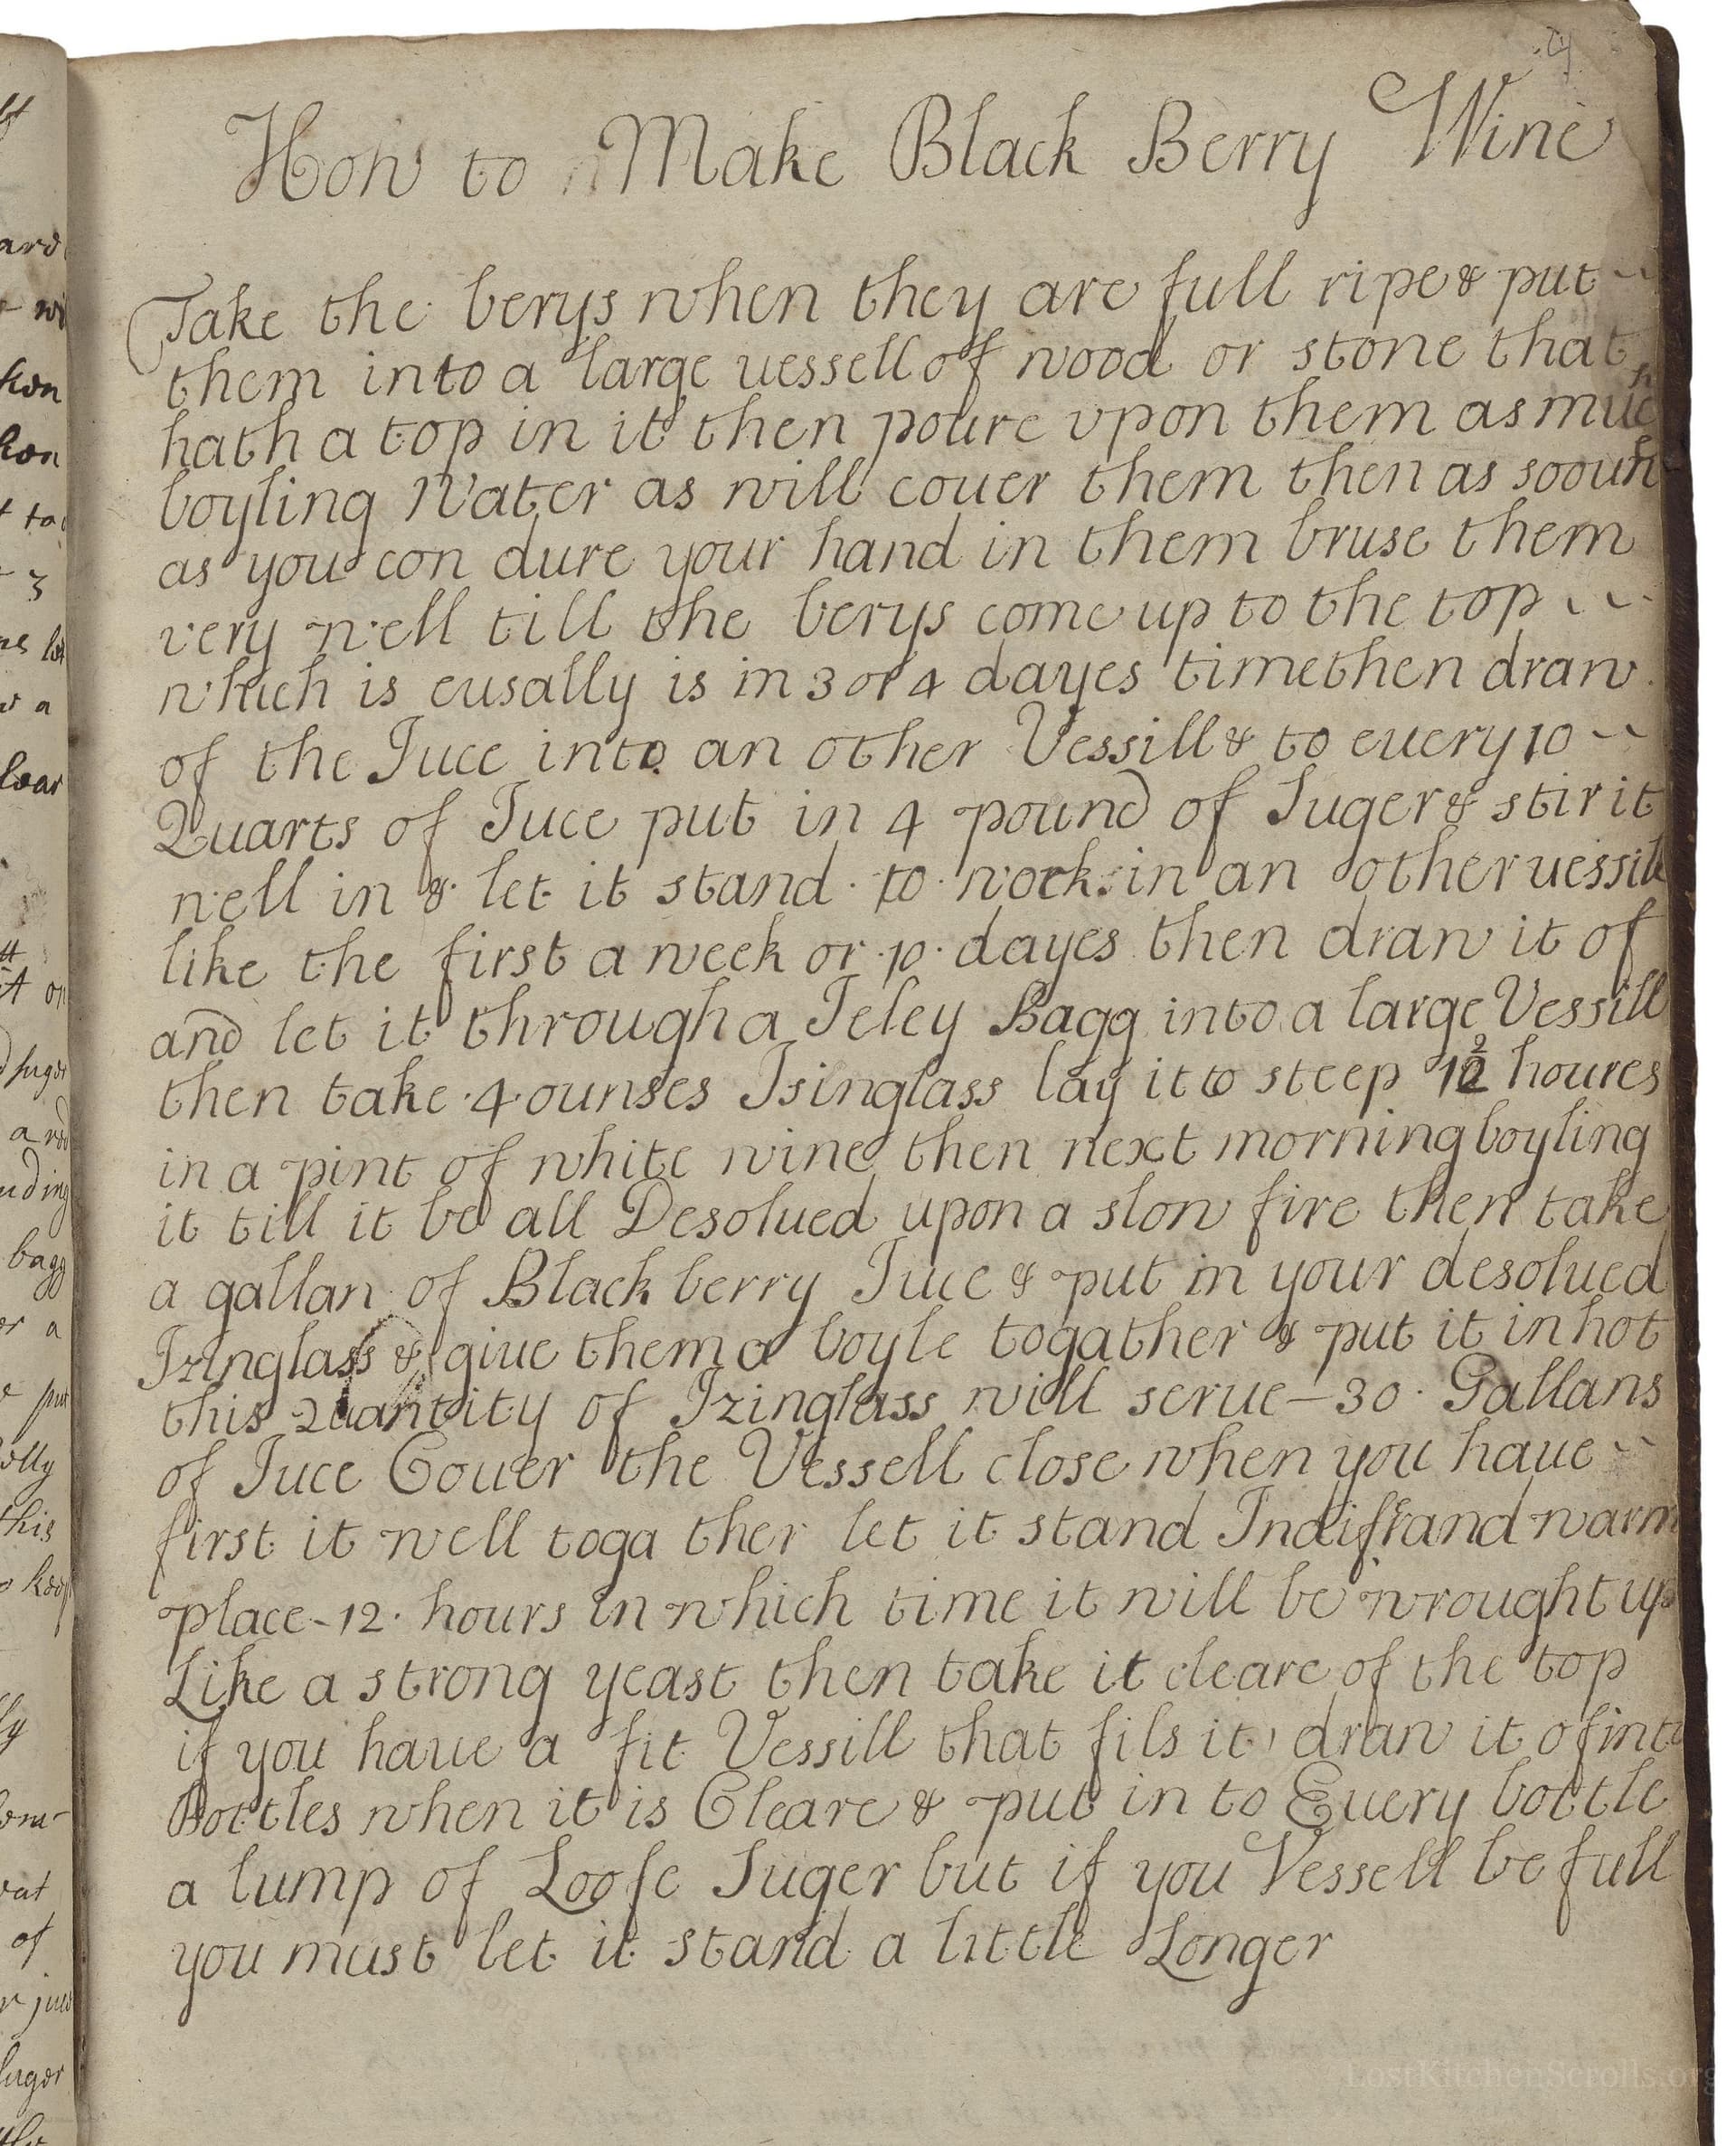 How to Make Black Berry Wine
Take the berys when they are full ripe & put
them into a large uessell of wood or stone that
hath a top in it then poure vpon them as much
boyling Water as will couer them then as sooun
as you con dure your hand in them bruse them
very well till the berys come up to the top
which is eusally is in 3 or 4 dayes time then draw
of the Juce into an other Vessill & to euery 10
Quarts of Juce put in 4 pound of Suger & stir it
well in & let it stand to work in an other uessill
like the first a week or 10 dayes then draw it of
and let it through a Jeley Bagg into a large Vessill
then take 4 ounses Isinglass lay it to steep 12 houres
in a pint of white wine then next morning boyling
it till it be all Desolued upon a slow fire then take
a gallan of Black berry Juce & put in your desolued
Izinglass & giue them a boyle togather & put it in hot
this Quantity of Izinglass will serue - 30 Gallans
of Juce Couer the Vessell close when you haue
first it well toga ther let it stand Indifrand warm
place - 12 hours in which time it will be wrought up
Like a strong yeast then take it cleare of the top
if you haue a fit Vessill that fils it draw it of into
Bottles when it is Cleare & put in to Euery bottle
a lump of Loofe Suger but if you Vessell be full
you must let it stand a little Longer
LostKitchenScrolls.org